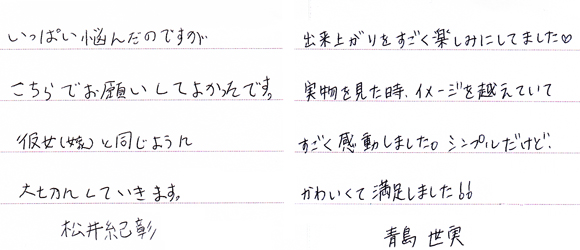 いっぱい悩んだのですが
こちらでお願いしてよかったです。
彼女(嫁)と同じように
大切にしていきます。
松井紀彰
出来上がりをすごく楽しみにしてました♡
実物を見た時、イメージを越えていて
すごく感動しました。シンプルだけど、
かわいくて満足しました!!
青島 世実